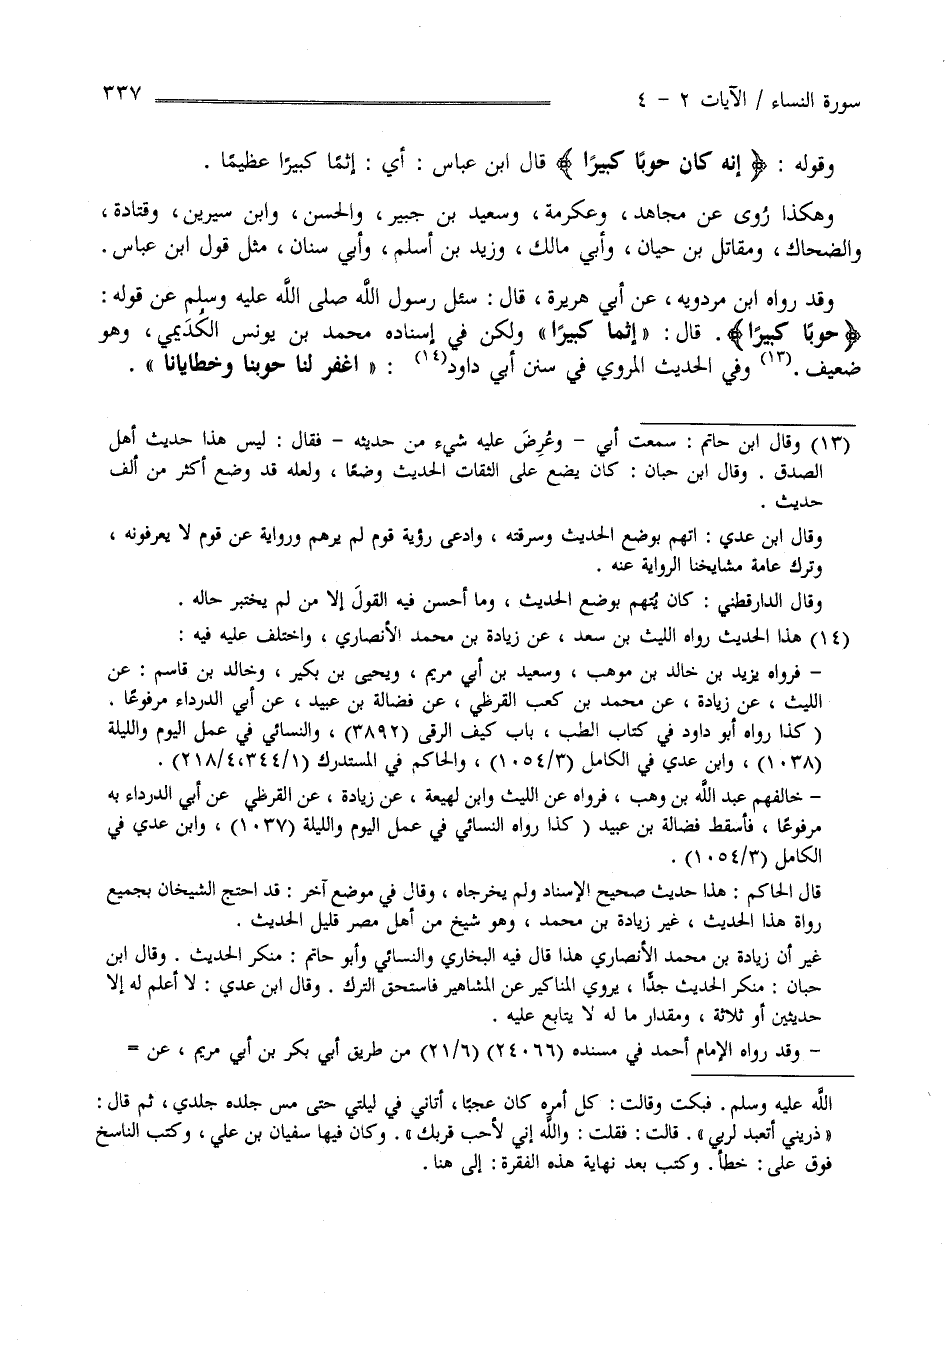 سورة النساء / الآيات ٢ - ٤ ٣٣٧
وقوله : ﴿ إنه كان حوبًا كبيرًا ﴾ قال ابن عباس : أي : إثمًا كبيرًا عظيمًا .
وهكذا رُوى عن مجاهد ، وعكرمة ، وسعيد بن جبير ، والحسن ، وابن سيرين ، وقتادة ،
والضحاك ، ومقاتل بن حيان ، وأبي مالك ، وزيد بن أسلم ، وأبي سنان ، مثل قول ابن عباس .
وقد رواه ابن مردويه ، عن أبي هريرة ، قال : سئل رسول اللَّه صلى اللَّه عليه وسلم عن قوله :
﴿ حوبًا كبيرًا ﴾ . قال : « إثما كبيرًا » ولكن في إسناده محمد بن يونس الكُدَيمي ، وهو
ضعيف .(١٣) وفي الحديث المروي في سنن أبي داود(١٤) : « اغفر لنا حوبنا وخطايانا » .
(١٣) وقال ابن حاتم : سمعت أبي - وعُرِضَ عليه شيء من حديثه - فقال : ليس هذا حديث أهل
الصدق . وقال ابن حبان : كان يضع على الثقات الحديث وضعًا ، ولعله قد وضع أكثر من ألف
حديث .
وقال ابن عدي : اتهم بوضع الحديث وسرقته ، وادعى رؤية قوم لم يرهم ورواية عن قوم لا يعرفونه ،
وترك عامة مشايخنا الرواية عنه .
وقال الدارقطني : كان يُتهم بوضع الحديث ، وما أحسن فيه القولَ إلا من لم يختبر حاله .
(١٤) هذا الحديث رواه الليث بن سعد ، عن زيادة بن محمد الأنصاري ، واختلف عليه فيه :
- فرواه يزيد بن خالد بن موهب ، وسعيد بن أبي مريم ، ويحيى بن بكير ، وخالد بن قاسم : عن
الليث ، عن زيادة ، عن محمد بن كعب القرظي ، عن فضالة بن عبيد ، عن أبي الدرداء مرفوعًا .
( كذا رواه أبو داود في كتاب الطب ، باب كيف الرقى (٣٨٩٢) ، والنسائي في عمل اليوم والليلة
(١٠٣٨) ، وابن عدي في الكامل (١٠٥٤/٣) ، والحاكم في المستدرك (٢١٨/٤،٣٤٤/١) .
- خالفهم عبد اللَّه بن وهب ، فرواه عن الليث وابن لهيعة ، عن زيادة ، عن القرظي عن أبي الدرداء به
مرفوعًا ، فأسقط فضالة بن عبيد ( كذا رواه النسائي في عمل اليوم والليلة (١٠٣٧) ، وابن عدي في
الكامل (١٠٥٤/٣) .
قال الحاكم : هذا حديث صحيح الإسناد ولم يخرجاه ، وقال في موضع آخر : قد احتج الشيخان بجميع
رواة هذا الحديث ، غير زيادة بن محمد ، وهو شيخ من أهل مصر قليل الحديث .
غير أن زيادة بن محمد الأنصاري هذا قال فيه البخاري والنسائي وأبو حاتم : منكر الحديث . وقال ابن
حبان : منكر الحديث جدًّا ، يروي المناكير عن المشاهير فاستحق الترك . وقال ابن عدي : لا أعلم له إلا
حديثين أو ثلاثة ، ومقدار ما له لا يتابع عليه .
- وقد رواه الإمام أحمد في مسنده (٢٤٠٦٦) (٢١/٦) من طريق أبي بكر بن أبي مريم ، عن =
اللَّه عليه وسلم . فبكت وقالت : كل أمره كان عجبًا ، أتاني في ليلتي حتى مس جلده جلدي ، ثم قال :
« ذريني أتعبد لربي » . قالت : فقلت : واللَّه إني لأحب قربك » . وكان فيها سفيان بن علي ، وكتب الناسخ
فوق على : خطأ . وكتب بعد نهاية هذه الفقرة : إلى هنا .